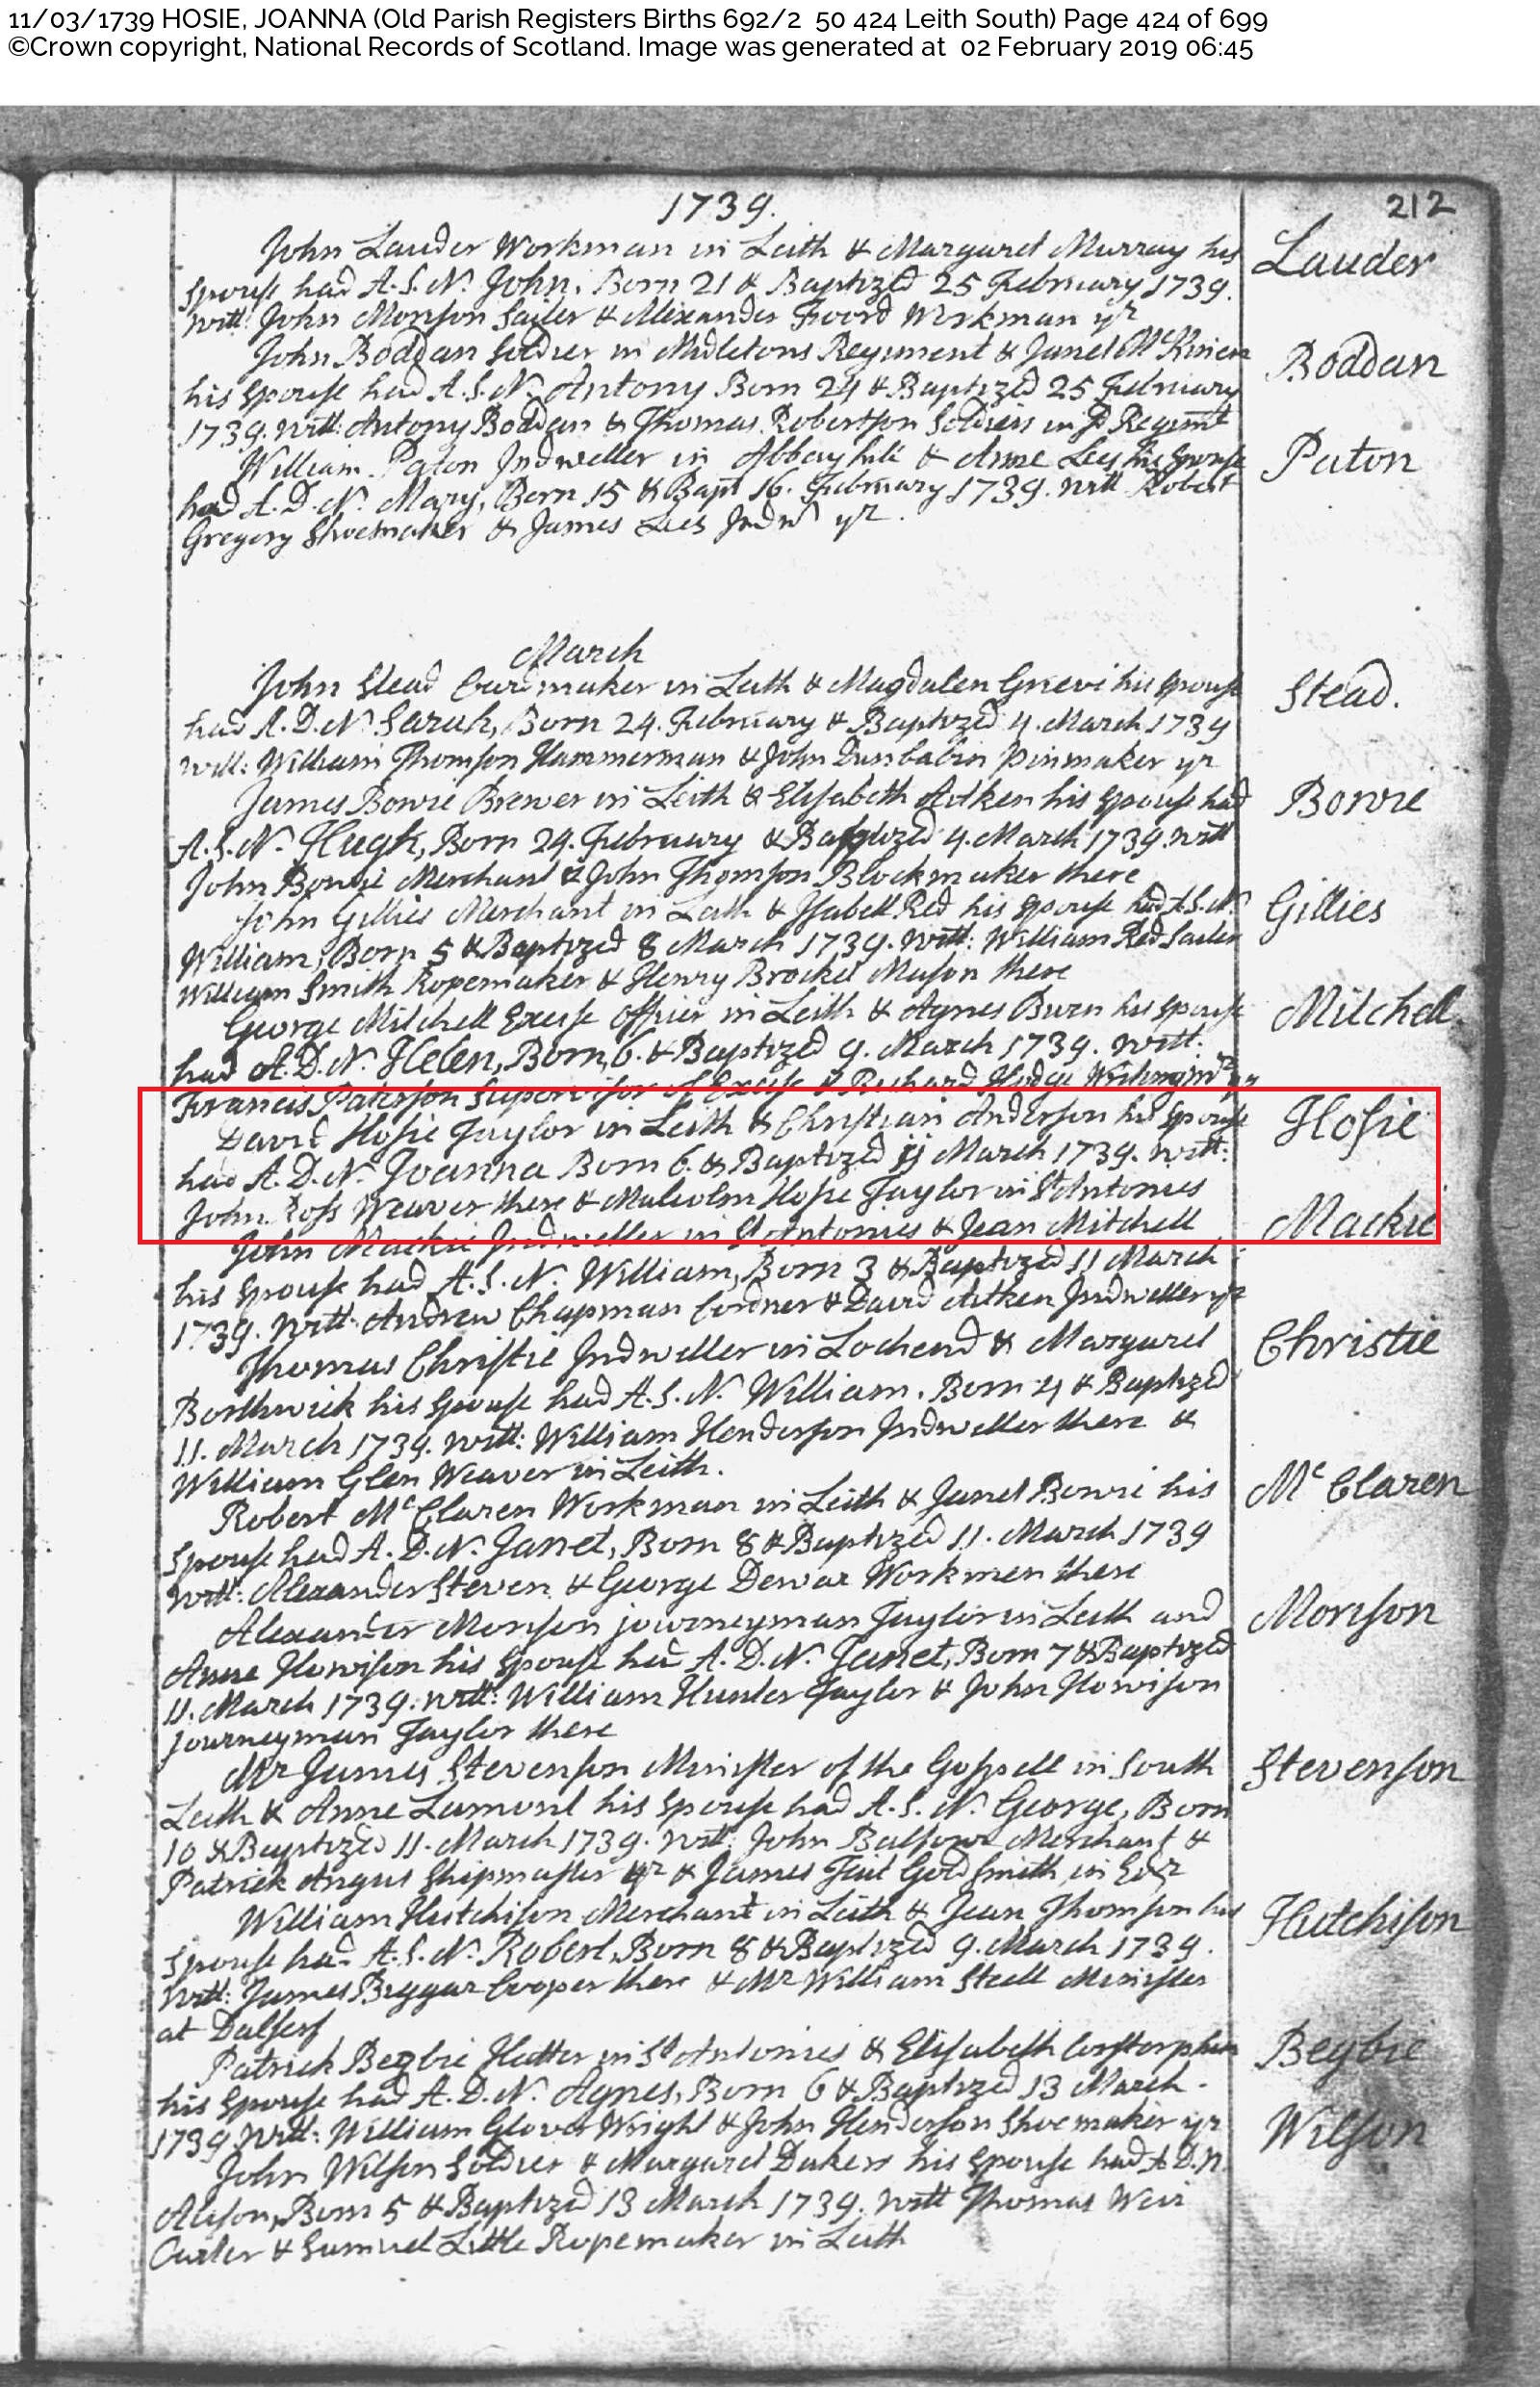 11/03/1739 HOSIE, JOANNA (Old Parish Registers Births 692/2 50 424 Leith South) Page 424 of 699
©Crown copyright, National Records of Scotland. Image was generated at 02 February 2019 06:45
1739. 212
John Lauder Workman in Leith & Margaret Murray his Lauder
Spouse had A.S.N. John, Born 21 & Baptized 25 February 1739.
Witt: John Morison Sailer & Alexander Foord Workman yr
John Boddan Soldier in Midletons Regiment & Janet Boddan
his Spouse had A.S.N. Antony Born 24 & Baptized 25 February
1739. Witt: Antony Boddan & Thomas Robertson Soldiers in sd Regimt
William Paton Indweller in Abbayhill & Anne Lees his Spouse Paton
had A.D.N. Mary, Born 15 & Bapt 16. February 1739. Witt Robert
Gregory Shoemaker & James Lees Indwr yr.
March
John Stead Cardmaker in Leith & Magdalen Grieve his Spouse Stead.
had A.D.N. Sarah, Born 24. February & Baptized 4. March 1739
Witt: William Thomson Hammerman & John Dunbabin Pinmaker yr
James Bowie Brewer in Leith & Elisabeth Aitken his Spouse had Bowie
A.S.N. Hugh, Born 24. February & Baptized 4. March 1739. Witt
John Bowie Merchant & John Thomson Blockmaker there
John Gillies Merchant in Leith & Isabell Red his Spouse had A.S.N. Gillies
William, Born 5 & Baptized 8 March 1739. Witt: William Red Sailer
William Smith Ropemaker & Henry Brockel Mason there
George Mitchell Excise Officer in Leith & Agnes Burn his Spouse Mitchell
had A.D.N. Helen, Born 6. & Baptized 9. March 1739. Witt:
Francis Paterson Supervisor of Excise & Richard Hodge yr
David Hosie Taylor in Leith & Christian Anderson his Spouse Hosie
had A.D.N. Joanna Born 6. & Baptized 11 March 1739. Witt:
John Ross Weaver there & Malcolm Hosie Taylor in St Antonies
John Mackie Indweller in St Antonies & Jean Mitchell Mackie
his Spouse had A.S.N. William, Born 3 & Baptized 11 March
1739. Witt: Andrew Chapman Cordner & David Aitken Indweller yr
Thomas Christie Indweller in Lochend & Margaret Christie
Borthwick his Spouse had A.S.N. William. Born 4 & Baptized
11. March 1739. Witt: William Henderson Indweller there &
William Glen Weaver in Leith.
Robert McClaren Workman in Leith & Janet Bowie his Mc Claren
Spouse had A.D.N. Janet, Born 8 & Baptized 11. March 1739
Witt: Alexander Steven & George Dewar Workmen there
Alexander Morison journeyman Taylor in Leith and Morison
Anne Howison his Spouse had A.D.N. Janet, Born 7 & Baptized
11. March 1739. Witt: William Hunter Taylor & John Howison
journeyman Taylor there
Mr James Stevenson Minister of the Gospell in South Stevenson
Leith & Anne Lamont his Spouse had A.S.N. George, Born
10 & Baptized 11. March 1739. Witt: John Balfour Merchant &
Patrick Angus Shipmaster yr & James Tait Goldsmith in Edr
William Hutchison Merchant in Leith & Jean Thomson his Hutchison
Spouse had A.S.N. Robert, Born 8 & Baptized 9. March 1739.
Witt: James Biggar Cooper there & Mr William Steell Minister
at Dalserf
Patrick Begbie Hatter in St Antonies & Elisabeth Corstorphin Begbie
his Spouse had A.D.N. Agnes, Born 6 & Baptized 13 March.
1739. Witt: William Glover Wright & John Henderson Shoemaker yr
John Wilson Soldier & Margaret Dukers his Spouse had A.D.N. Wilson
Alison, Born 5 & Baptized 13 March 1739. Witt Thomas Weir
Carter & Samuel Little Ropemaker in Leith